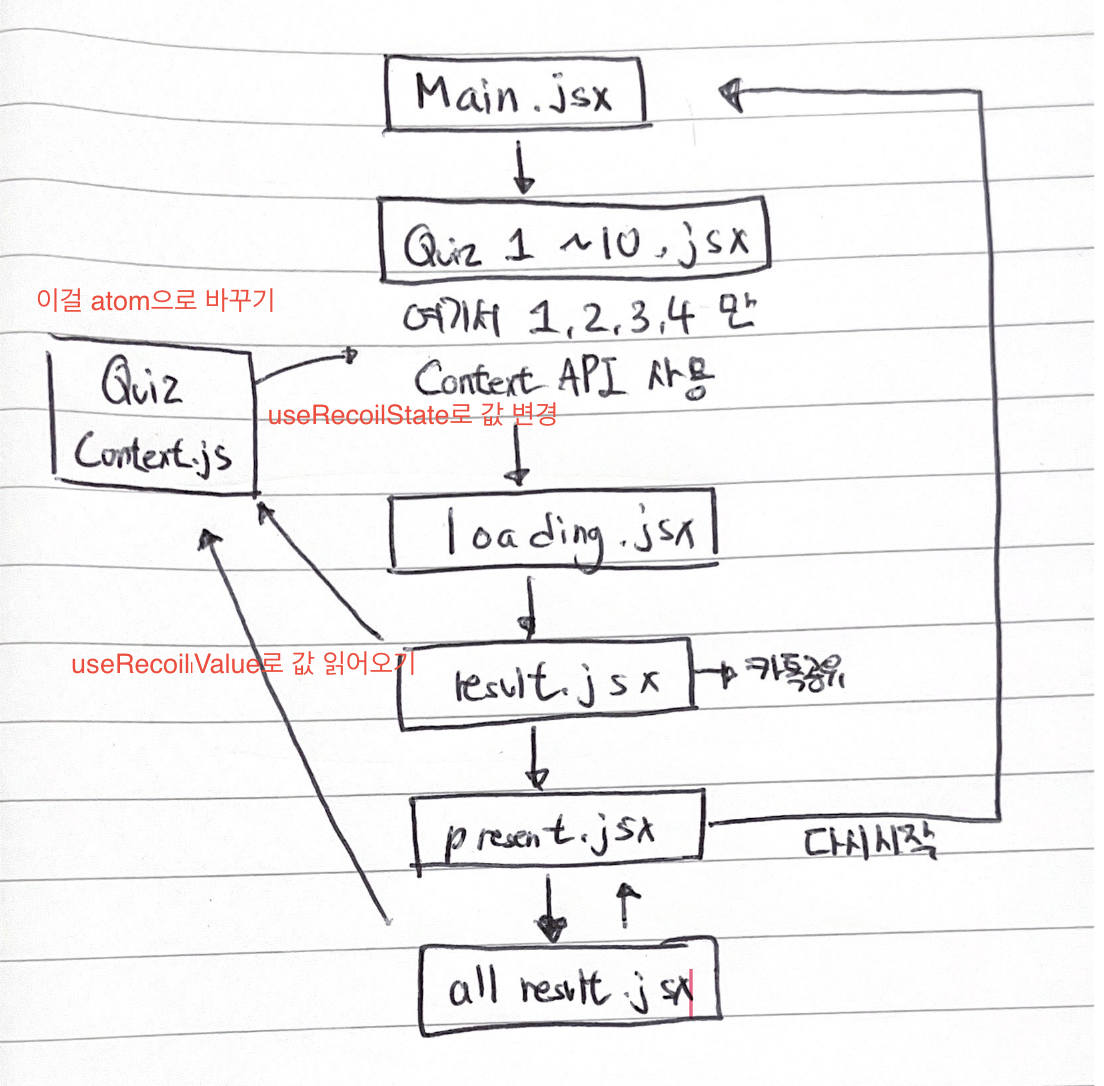 Main.jsx
Quiz 1 ~10.jsx
이걸 atom으로 바꾸기
여기서 1,2,3,4 만
Quiz
Context.js
Context API 사용
useRecoilState로 값 변경
loading.jsx
useRecoilValue로 값 읽어오기
result.jsx
카톡공유
present.jsx
다시시작
all result.jsx